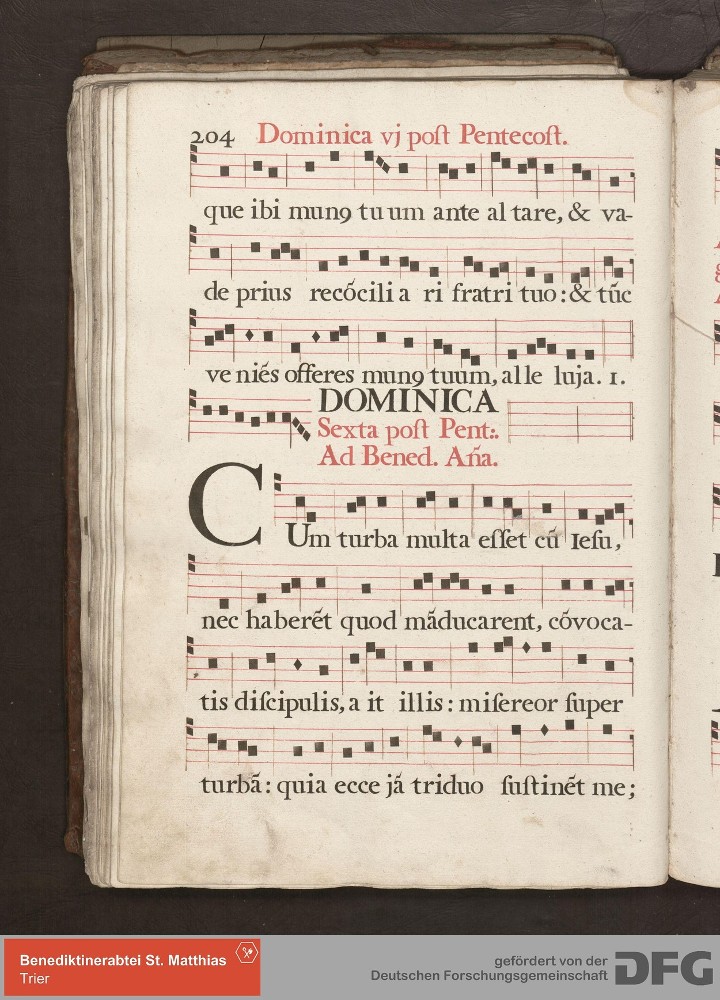 204 Dominica vj poſt Pentecoſt.
que ibi munꝯ tuum ante al tare, & va-
de prius recōcili a ri fratri tuo: & tūc
ve niēs offeres munꝯ tuum, al le luja. 1.
DOMINICA
Sexta poſt Pent:.
Ad Bened. Añа.
CUm turba multa eſſet cū Ieſu,
nec haberēt quod māducarent, cōvoca-
tis diſcipulis, a it illis: miſereor ſuper
turbā: quia ecce jā triduo ſuſtinēt me;
Benediktinerabtei St. Matthias
Trier
gefördert von der
Deutschen Forschungsgemeinschaft DFG